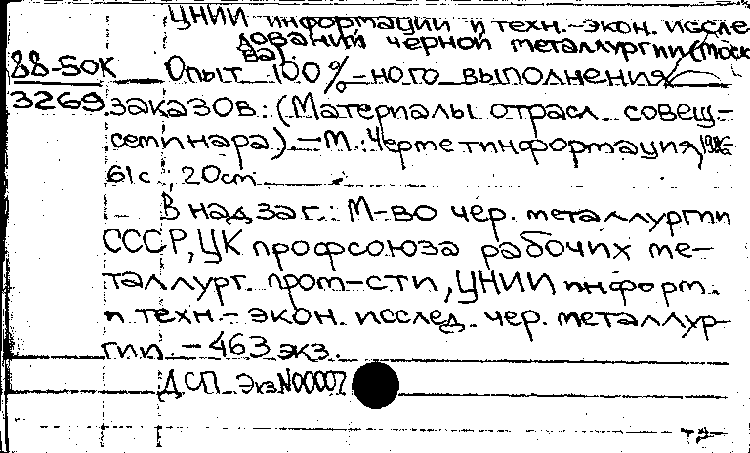 ЦНИИ информации и техн.-экон. иссле
дований черной металлургии (Моск
ва).
88-50К Опыт 100%-ного выполнения
3269 заказов: (Материалы отрасл. совещ-
семинара). - М.: Черметинформация, 1986
61 с.; 20 см
В надзаг.: М-во чер. металлургии
СССР, ЦК профсоюза рабочих ме-
таллург. пром-сти, ЦНИИ информ.
и техн.- экон. исслед. чер. металлур-
гии. - 463 экз.
ДСП Экз N00007